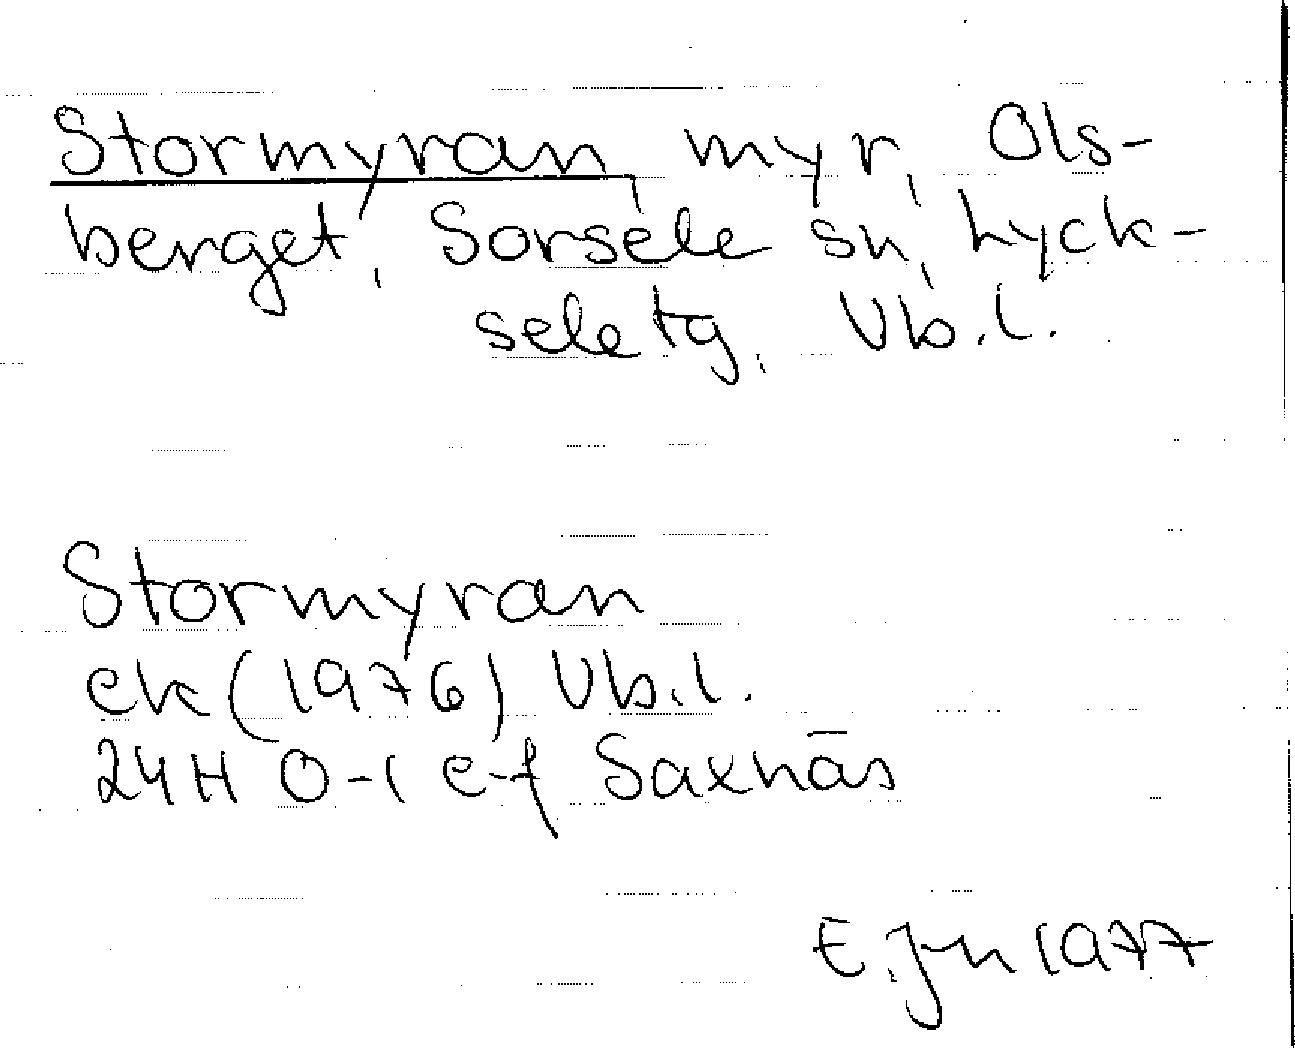 Stormyran, myr, Ols-
berget, Sorsele sn, Lyck-
sele tg, Vb.l.
Stormyran
ek (1976) Vb.l.
24H 0-1 e-f Saxnäs
E. Jn 1977